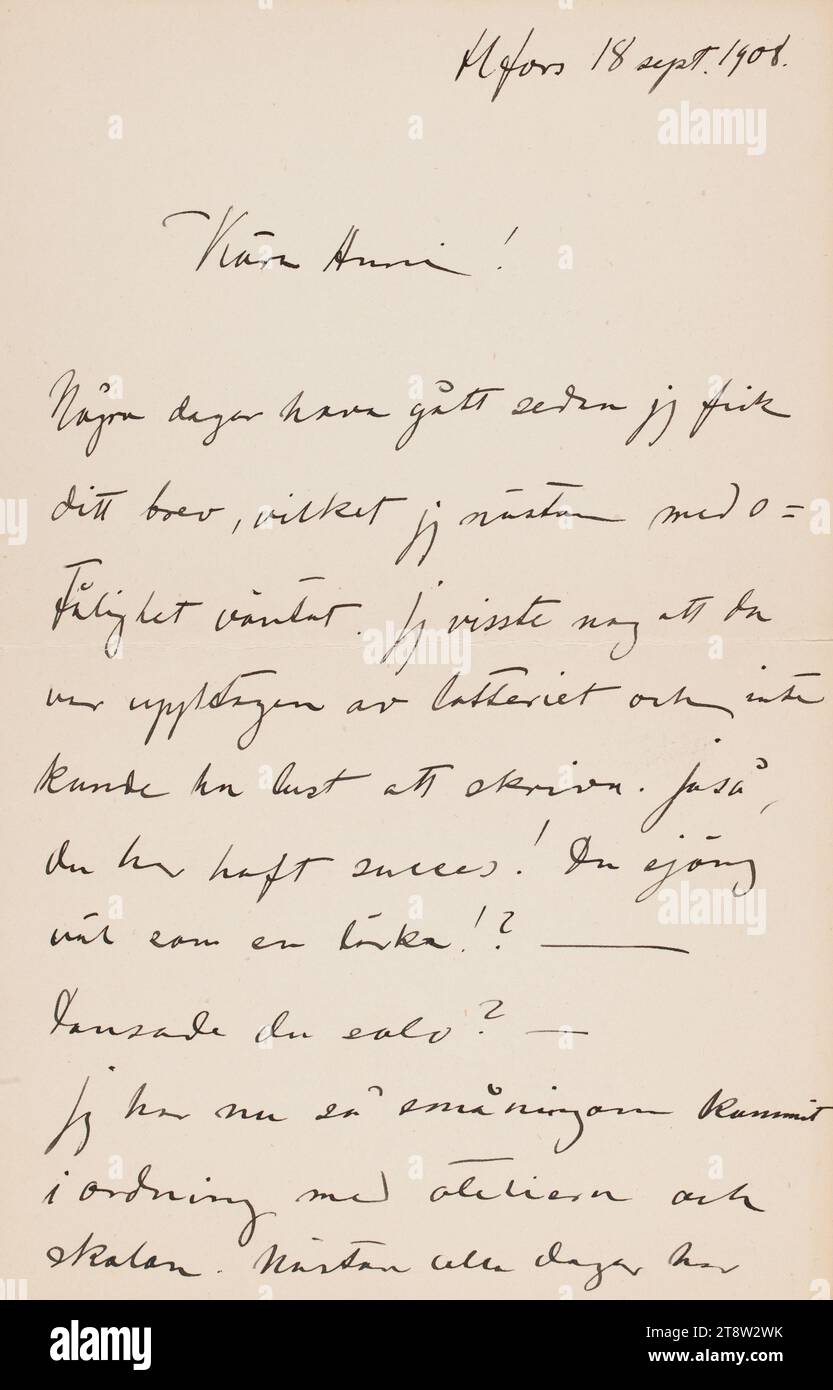 Hfors 18 sept. 1908.
Kära Anni!
Några dagar hava gått sedan jg fick
ditt brev, vilket jg nästan med o=
tålighet väntat. Jg visste nog att du
var upptagen av lotteriet och inte
kunde ha lust att skriva. Jaså,
du har haft succes! Du sjöng
väl som en lärka!? —
Dansade du solo? —
Jg har nu så småningom kommit
i ordning med ateliern och
skolan. Nästan alla dagar har
alamy
Image ID: 2T8W2WK
www.alamy.com